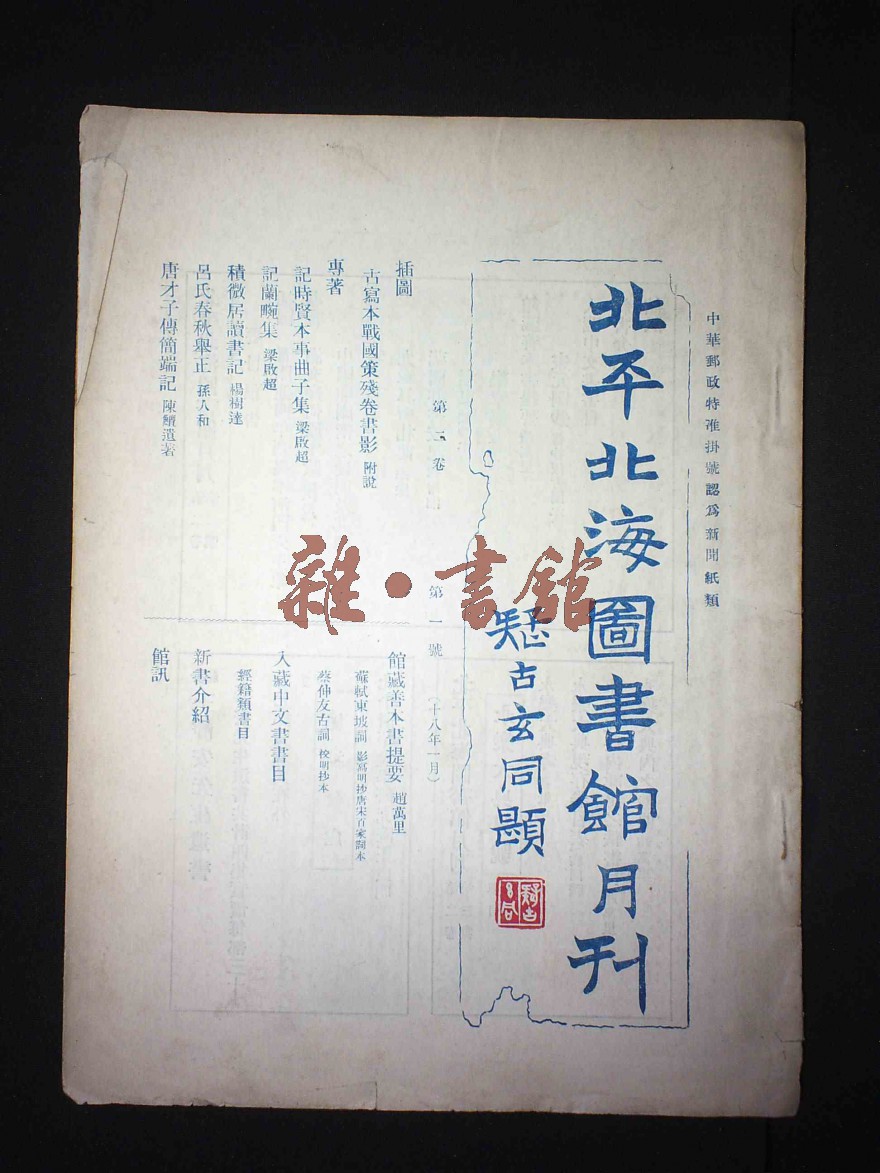 中華郵政特准掛號認爲新聞紙類
北平北海圖書館月刊
疑古玄同題
第二卷 第一號 (十八年一月)
插圖
古寫本戰國策殘卷書影 附說
專著
記時賢本事曲子集 梁啟超
記蘭畹集 梁啟超
積微居讀書記 楊樹達
呂氏春秋舉正 孫人和
唐才子傳簡端記 陳鱣遺著
館藏善本書提要 趙萬里
蘇軾東坡詞 影寫明抄唐宋百家詞本
蔡伸友古詞 校明抄本
入藏中文書書目
經籍類書目
新書介紹
館訊
雜·書館